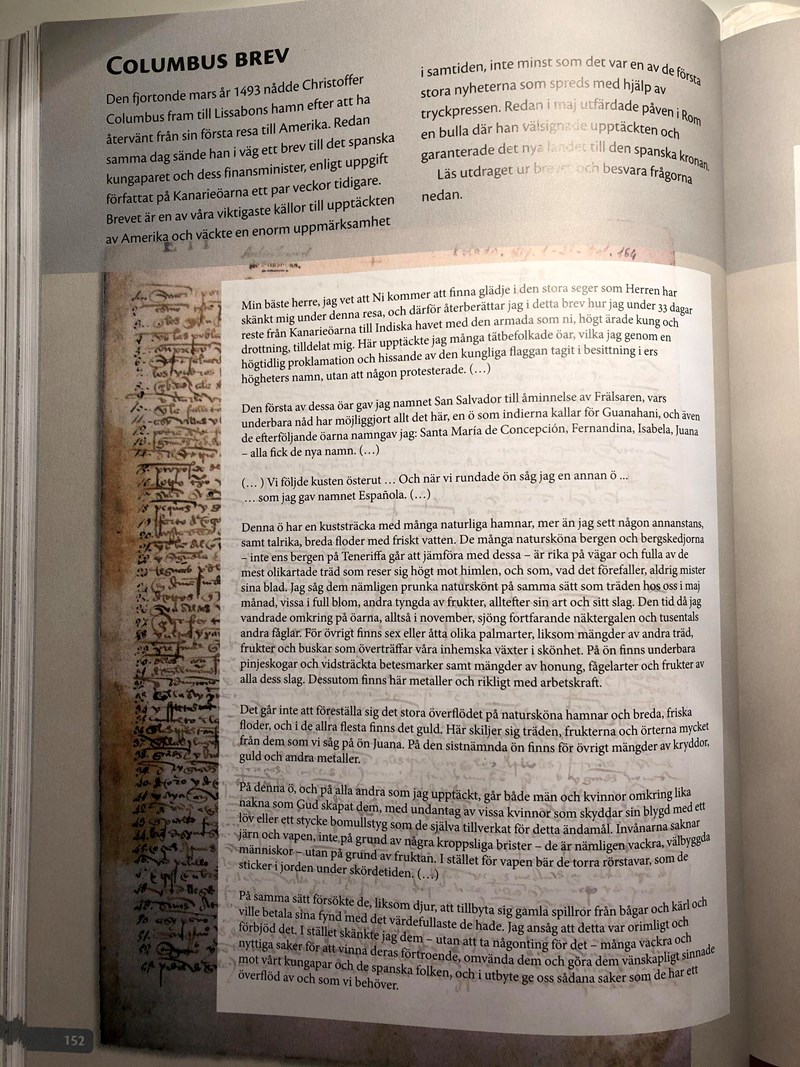 COLUMBUS BREV
Den fjortonde mars år 1493 nådde Christoffer
Columbus fram till Lissabons hamn efter att ha
återvänt från sin första resa till Amerika. Redan
samma dag sände han i väg ett brev till det spanska
kungaparet och dess finansminister, enligt uppgift
författat på Kanarieöarna ett par veckor tidigare.
Brevet är en av våra viktigaste källor till upptäckten
av Amerika och väckte en enorm uppmärksamhet
i samtiden, inte minst som det var en av de första
stora nyheterna som spreds med hjälp av
tryckpressen. Redan i maj utfärdade påven i Rom
en bulla där han välsignade upptäckten och
garanterade det nya landet till den spanska kronan.
Läs utdraget ur brevet och besvara frågorna
nedan.
164
Min bäste herre, jag vet att Ni kommer att finna glädje i den stora seger som Herren har
skänkt mig under denna resa, och därför återberättar jag i detta brev hur jag under 33 dagar
reste från Kanarieöarna till Indiska havet med den armada som ni, högt ärade kung och
drottning, tilldelat mig. Här upptäckte jag många tätbefolkade öar, vilka jag genom en
högtidlig proklamation och hissande av den kungliga flaggan tagit i besittning i ers
högheters namn, utan att någon protesterade. (…)
Den första av dessa öar gav jag namnet San Salvador till åminnelse av Frälsaren, vars
underbara nåd har möjliggjort allt det här, en ö som indierna kallar för Guanahani, och även
de efterföljande öarna namngav jag: Santa María de Concepción, Fernandina, Isabela, Juana
– alla fick de nya namn. (…)
(… ) Vi följde kusten österut … Och när vi rundade ön såg jag en annan ö ...
… som jag gav namnet Española. (…)
Denna ö har en kuststräcka med många naturliga hamnar, mer än jag sett någon annanstans,
samt talrika, breda floder med friskt vatten. De många natursköna bergen och bergskedjorna
– inte ens bergen på Teneriffa går att jämföra med dessa – är rika på vägar och fulla av de
mest olikartade träd som reser sig högt mot himlen, och som, vad det förefaller, aldrig mister
sina blad. Jag såg dem nämligen prunka naturskönt på samma sätt som träden hos oss i maj
månad, vissa i full blom, andra tyngda av frukter, alltefter sin art och sitt slag. Den tid då jag
vandrade omkring på öarna, alltså i november, sjöng fortfarande näktergalen och tusentals
andra fåglar. För övrigt finns sex eller åtta olika palmarter, liksom mängder av andra träd,
frukter och buskar som överträffar våra inhemska växter i skönhet. På ön finns underbara
pinjeskogar och vidsträckta betesmarker samt mängder av honung, fågelarter och frukter av
alla dess slag. Dessutom finns här metaller och rikligt med arbetskraft.
Det går inte att föreställa sig det stora överflödet på natursköna hamnar och breda, friska
floder, och i de allra flesta finns det guld. Här skiljer sig träden, frukterna och örterna mycket
från dem som vi såg på ön Juana. På den sistnämnda ön finns för övrigt mängder av kryddor,
guld och andra metaller.
På denna ö, och på alla andra som jag upptäckt, går både män och kvinnor omkring lika
nakna som Gud skapat dem, med undantag av vissa kvinnor som skyddar sin blygd med ett
löv eller ett stycke bomullstyg som de själva tillverkat för detta ändamål. Invånarna saknar
järn och vapen, inte på grund av några kroppsliga brister – de är nämligen vackra, välbyggda
människor – utan på grund av fruktan. I stället för vapen bär de torra rörstavar, som de
sticker i jorden under skördetiden. (…)
På samma sätt försökte de, liksom djur, att tillbyta sig gamla spillror från bågar och kärl och
ville betala sina fynd med det värdefullaste de hade. Jag ansåg att detta var orimligt och
förbjöd det. I stället skänkte jag dem – utan att ta någonting för det – många vackra och
nyttiga saker för att vinna deras förtroende, omvända dem och göra dem vänskapligt sinnade
mot vårt kungapar och de spanska folken, och i utbyte ge oss sådana saker som de har ett
överflöd av och som vi behöver.
152